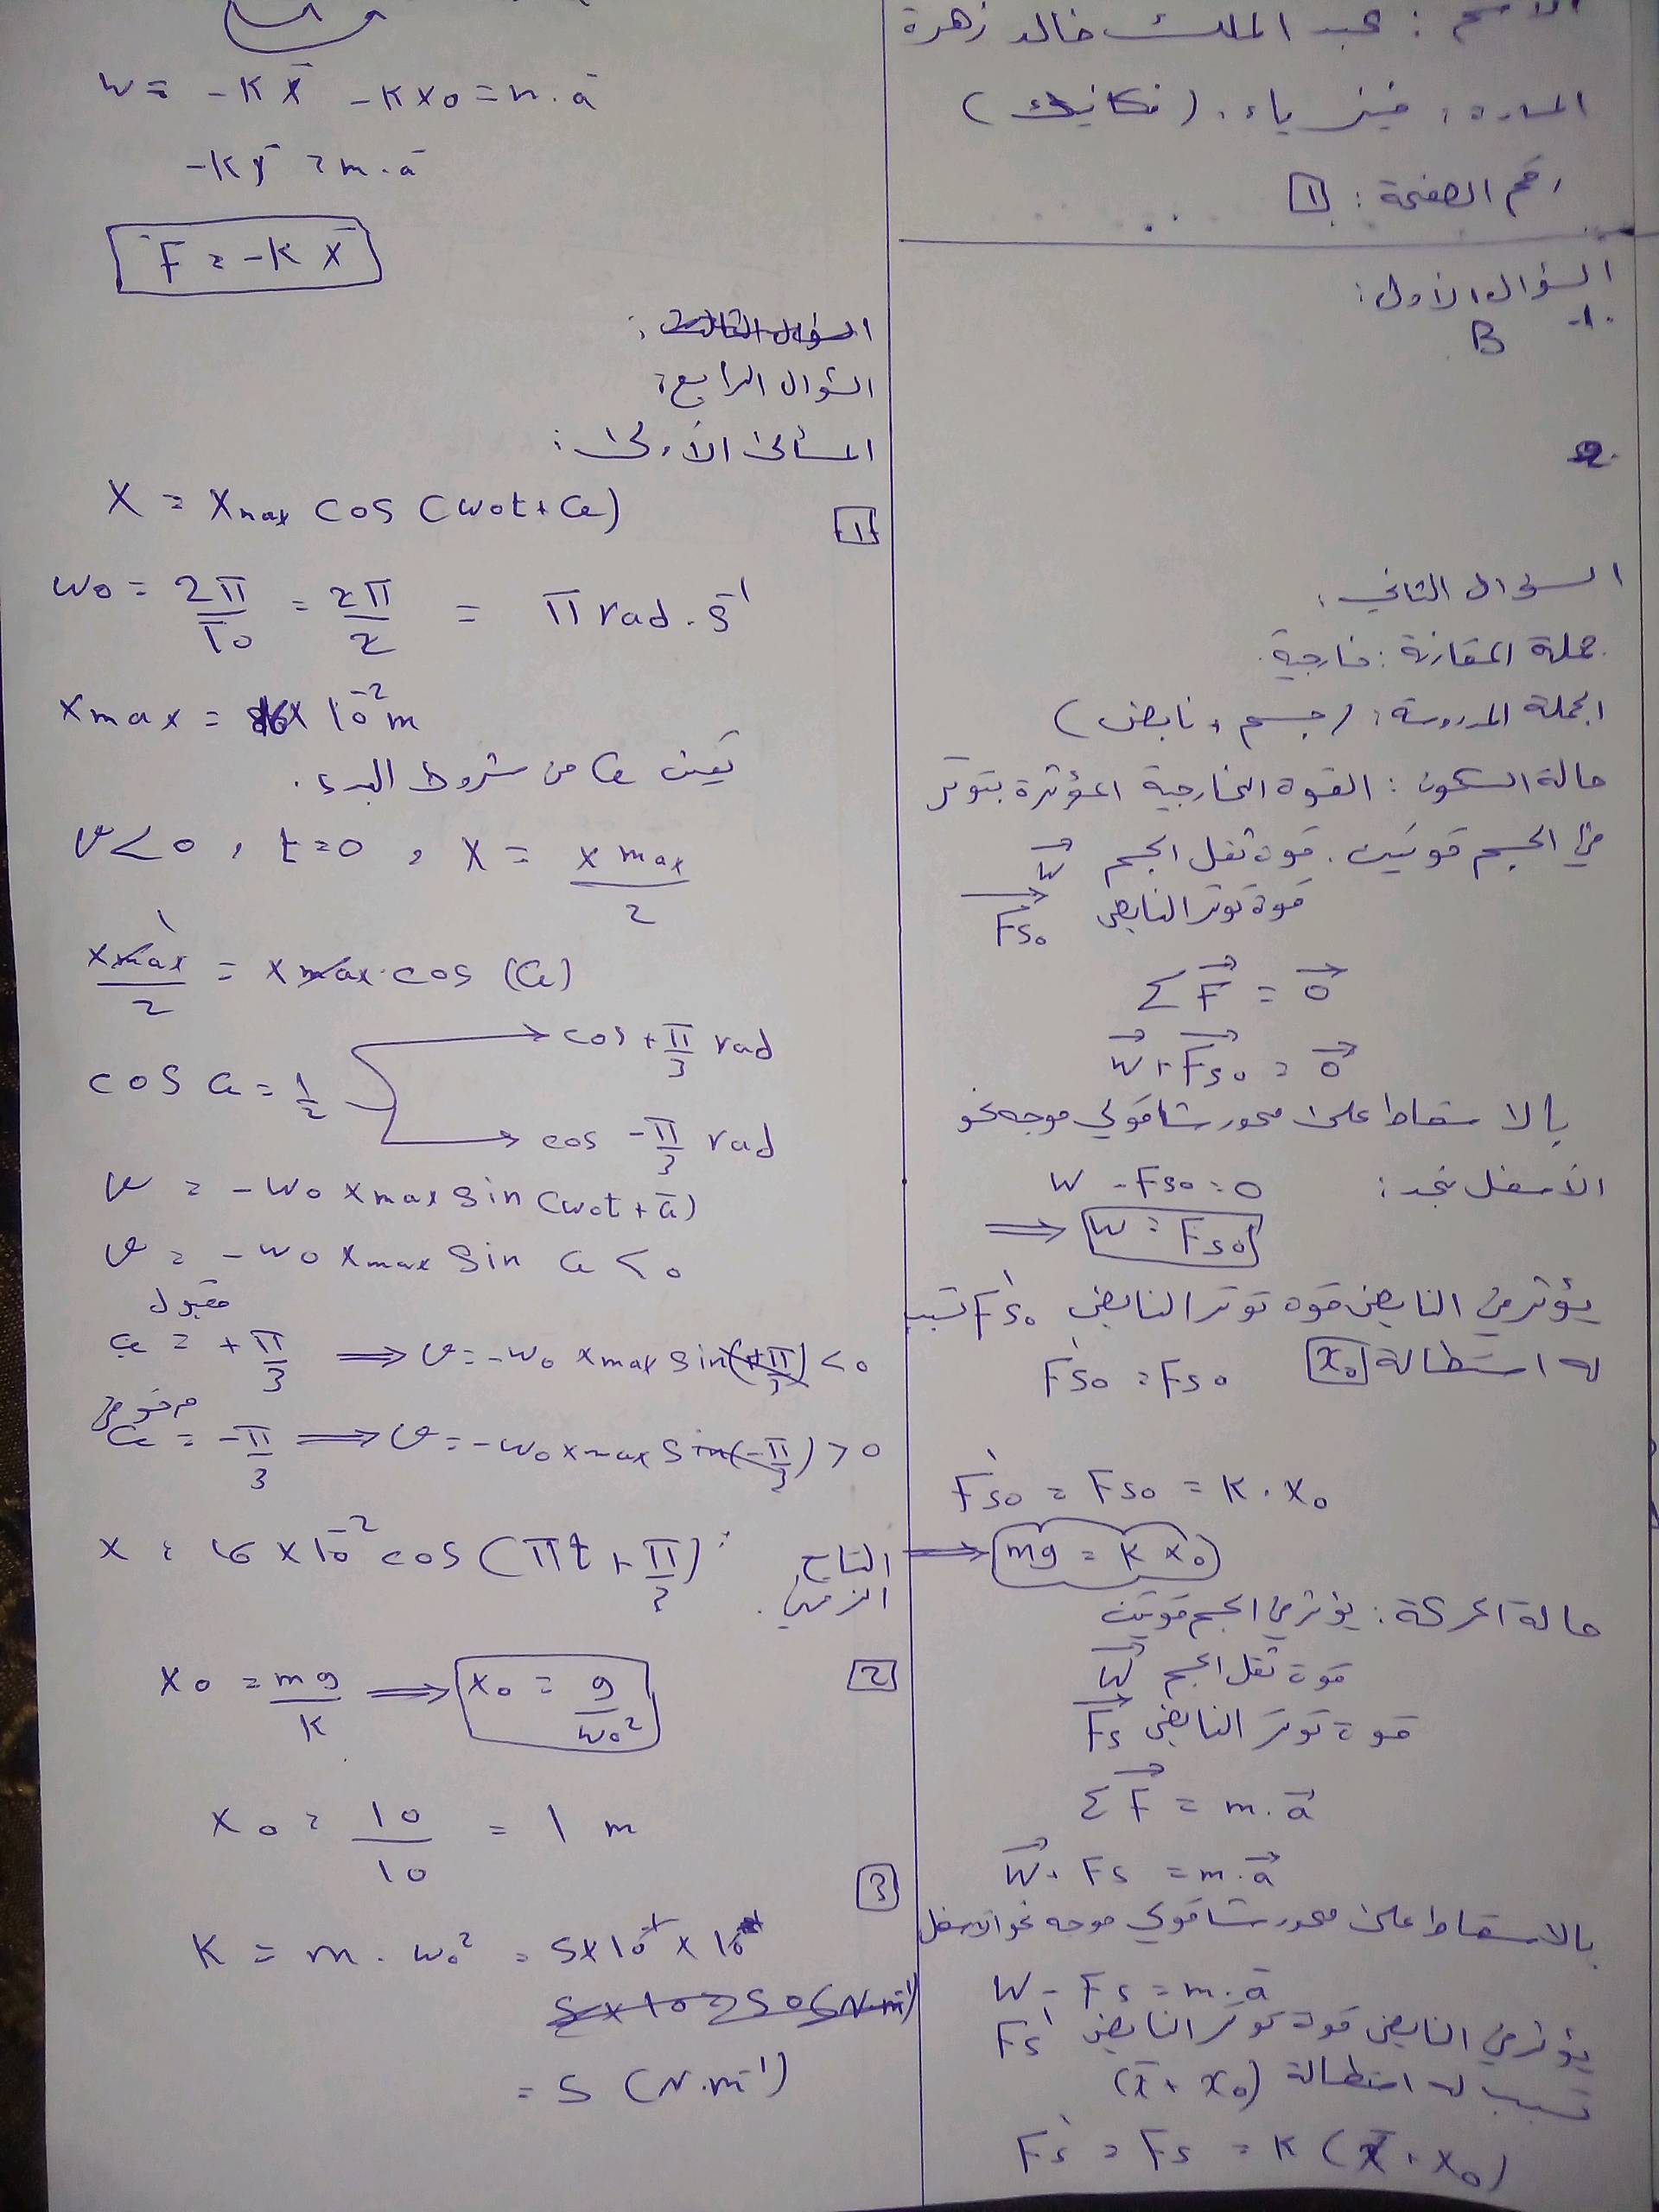 الاسم : عبد الملك خالد زهرة
المادة : فيزياء . (ميكانيك)
رقم الصفحة : 1
السؤال الأول :
1- B
2.
السؤال الثاني :
جملة المقارنة : خارجية .
الجملة المدروسة : (جسم ، نابض)
حالة السكون : القوة الخارجية المؤثرة بتوتر
في الجسم قوتين . قوة ثقل الجسم W⃗
قوة توتر النابض F⃗s₀
ΣF⃗ = 0⃗
W⃗ + F⃗s₀ = 0⃗
بالاسقاط على محور شاقولي موجه نحو
الأسفل نجد : W - Fs₀ = 0
⟹ W = Fs₀
يؤثر في النابض قوة توتر النابض F's₀ تسبب
له استطالة x₀ F's₀ = Fs₀
F's₀ = Fs₀ = K . x₀
⟹ mg = K x₀
حالة الحركة : يؤثر في الجسم قوتين
قوة ثقل الجسم W⃗
قوة توتر النابض F⃗s
ΣF⃗ = m . a⃗
W⃗ + Fs = m . a⃗
بالاسقاط على محور شاقولي موجه نحو الاسفل
W - Fs = m . a̅
يؤثر في النابض قوة توتر النابض F's
تسبب له استطالة (x̅ + x₀)
F's = Fs = K (x̅ + x₀)
W = -K x̅ - K x₀ = m . a̅
-K x̅ = m . a̅
F̅ = -K x̅
السؤال الثالث :
السؤال الرابع :
المسألة الأولى :
1
X = Xmax cos (ω₀t + φ)
ω₀ = 2π/T₀ = 2π/2 = π rad . s⁻¹
xmax = 16 × 10⁻² m
نعين φ من شروط البدء .
v < 0 , t = 0 , X = xmax/2
xmax/2 = xmax . cos (φ)
cos φ = 1/2
cos + π/3 rad
cos - π/3 rad
v = -ω₀ xmax sin (ω₀t + φ̅)
v = -ω₀ xmax sin φ < 0
مقبول
φ = + π/3 ⟹ v = -ω₀ xmax sin(+π/3) < 0
مرفوض
φ = - π/3 ⟹ v = -ω₀ xmax sin(-π/3) > 0
X = 16 × 10⁻² cos (πt + π/3) : التابع الزمني .
2
x₀ = mg/K ⟹ x₀ = g/ω₀²
x₀ = 10/10 = 1 m
3
K = m . ω₀² = 5×10⁻¹ × 10
5×10 = 50 (N.m⁻¹)
= 5 (N.m⁻¹)